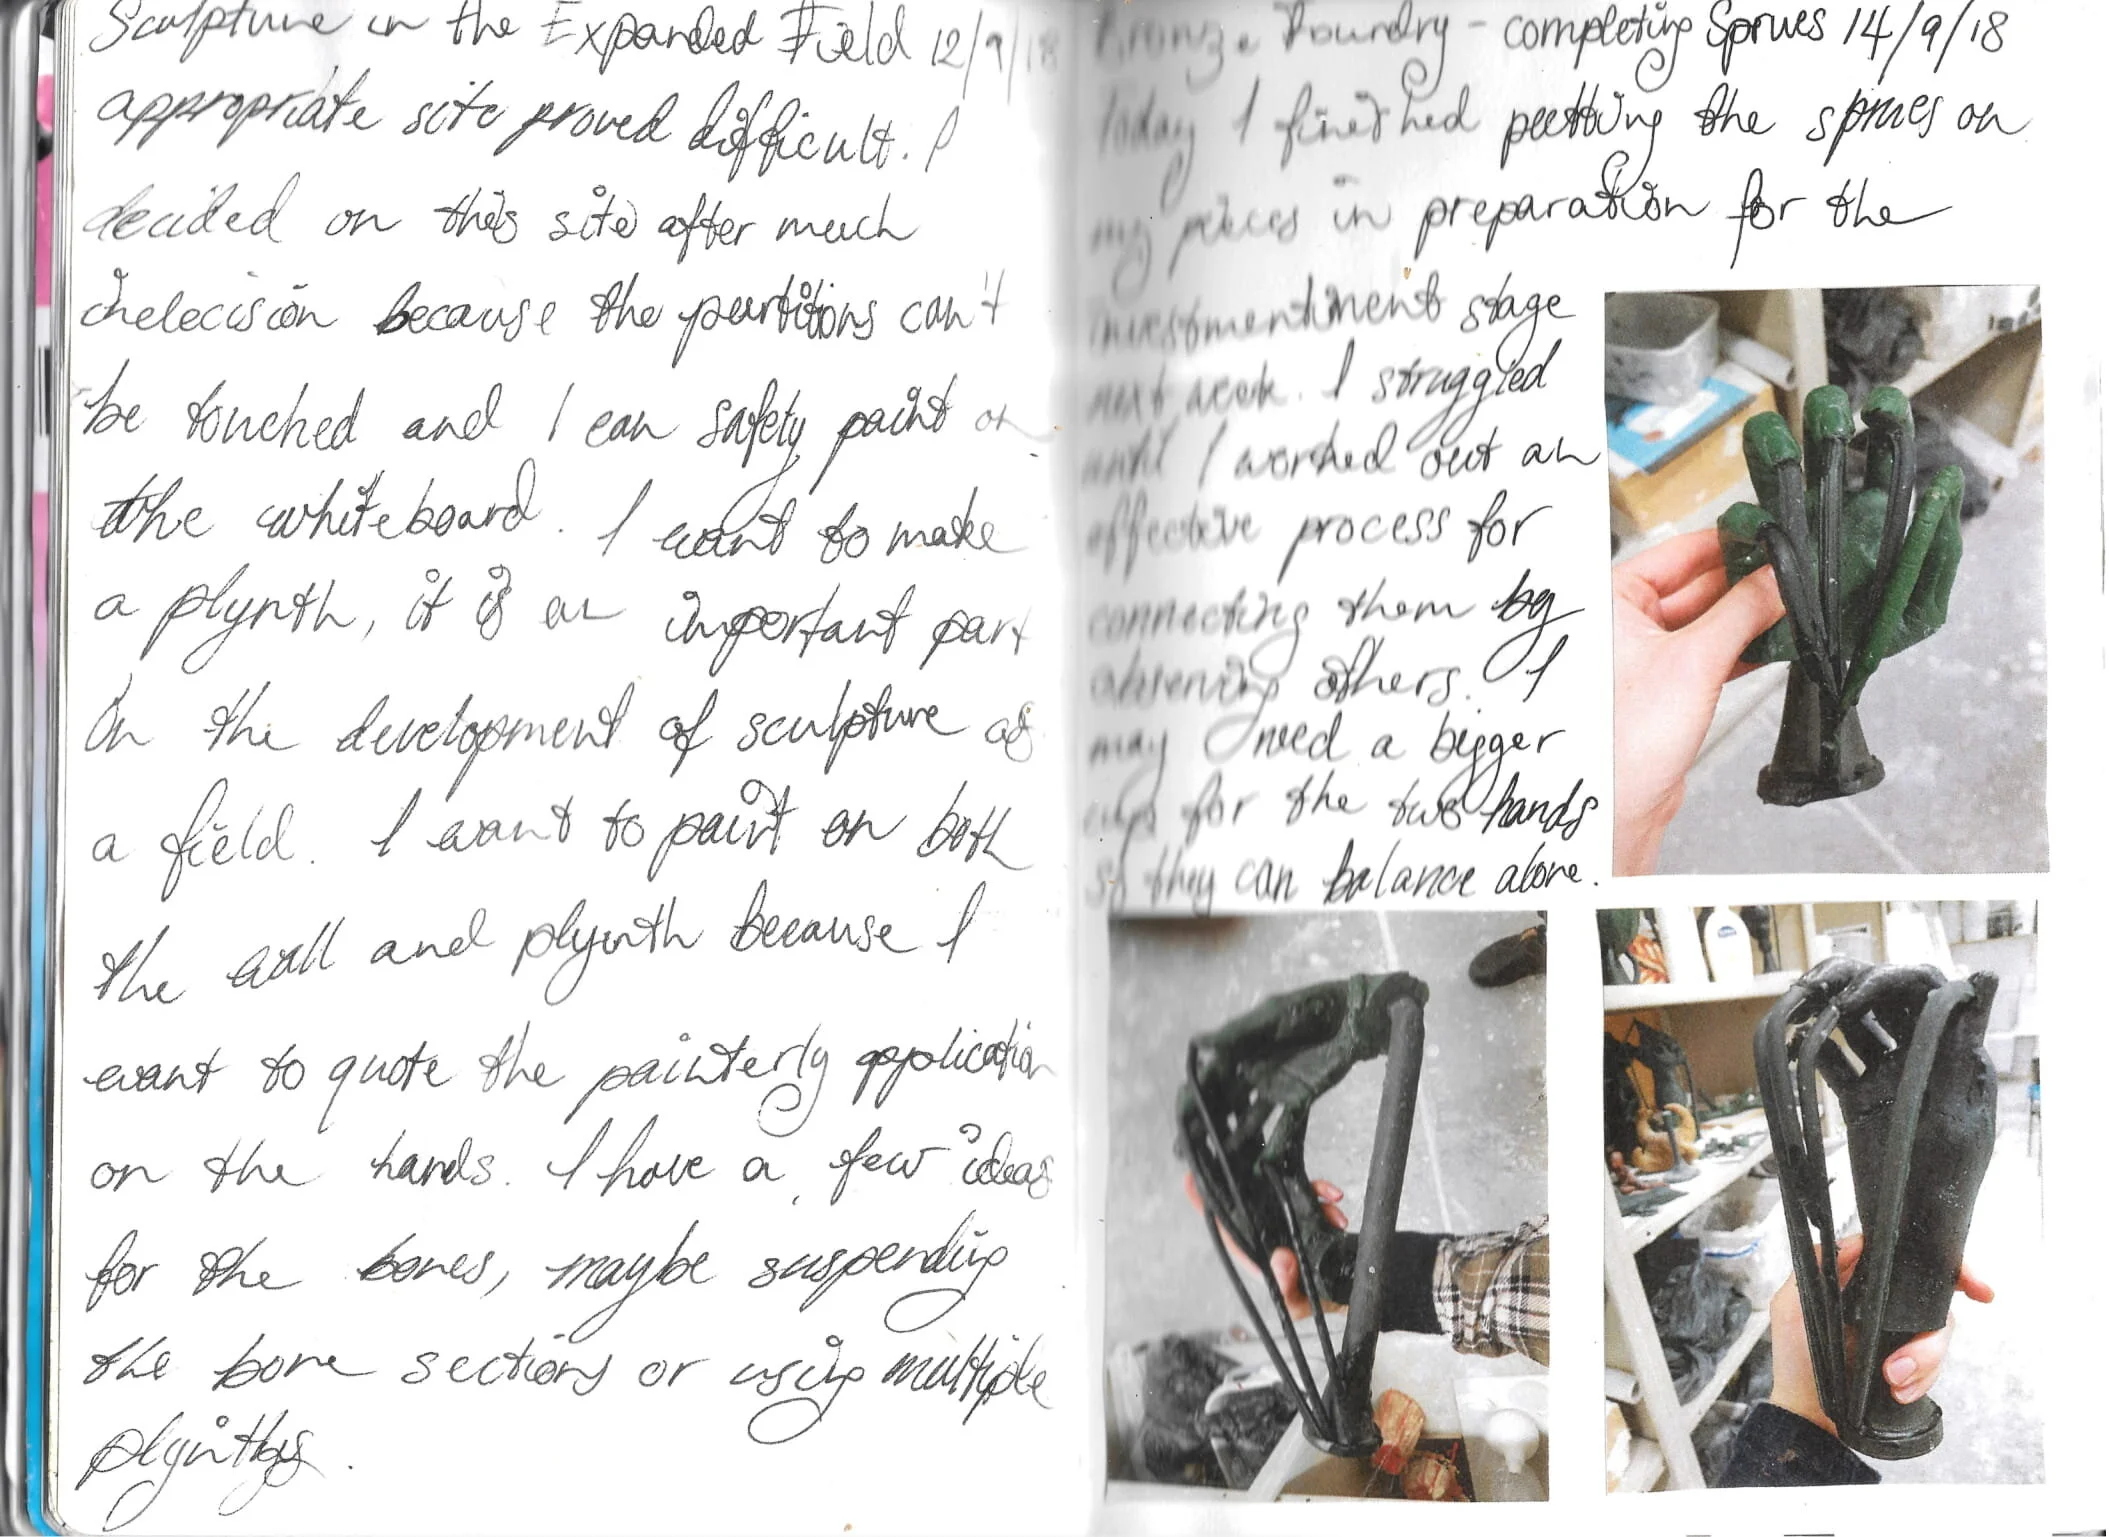 Sculpture in the Expanded Field 12/9/18
appropriate site proved difficult. I
decided on this site after much
indecision because the partitions can't
be touched and I can safety paint on
the whiteboard. I want to make
a plynth, it is an important part
in the development of sculpture as
a field. I want to paint on both
the wall and plynth because I
want to quote the painterly application
on the hands. I have a few ideas
for the bones, maybe suspending
the bone sections or using multiple
plynths.
Bronze Foundry - completing Sprues 14/9/18
Today I finished putting the sprues on
my pieces in preparation for the
investmentment stage
next week. I struggled
until I worked out an
effective process for
connecting them by
observing others. I
may need a bigger
cup for the two hands
so they can balance alone.